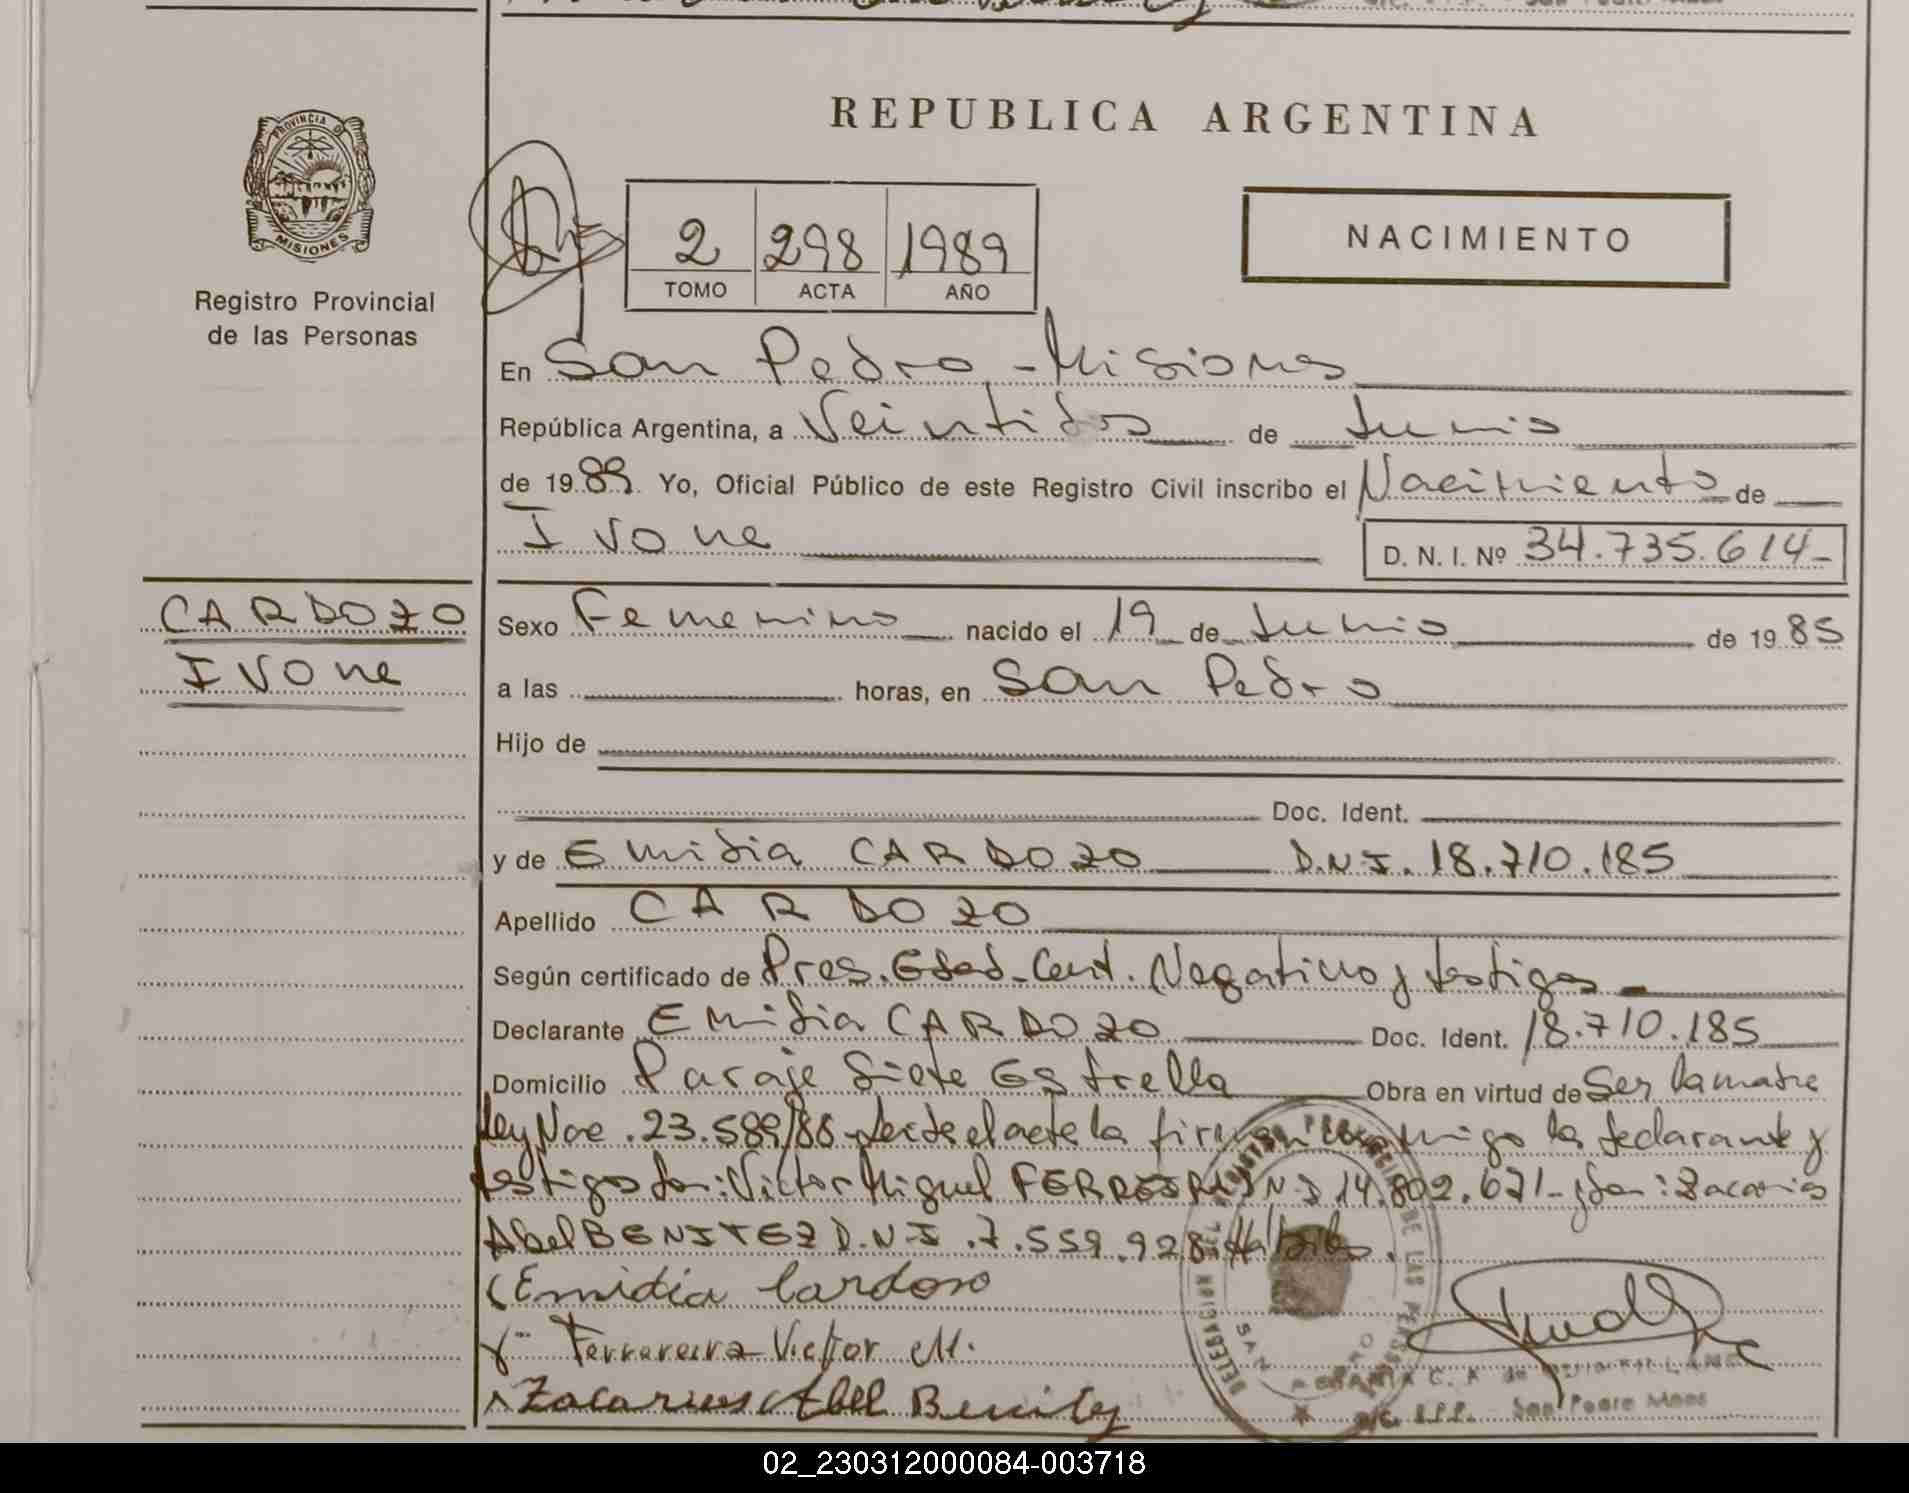 REPUBLICA ARGENTINA
PROVINCIA DE
MISIONES
Registro Provincial
de las Personas
2 298 1989
TOMO ACTA AÑO
NACIMIENTO
En San Pedro - Misiones
República Argentina, a Veintidos de Junio
de 1989 Yo, Oficial Público de este Registro Civil inscribo el Nacimiento de
Ivone
D. N. I. Nº 34.735.614-
CARDOZO
Ivone
Sexo Femenino nacido el 19 de Junio de 1985
a las horas, en San Pedro
Hijo de
Doc. Ident.
y de Emidia CARDOZO D.N.I. 18.710.185
Apellido CARDOZO
Según certificado de Pres. Edad - Cert. Negativo y testigos
Declarante Emidia CARDOZO Doc. Ident. 18.710.185
Domicilio Paraje Siete Estrella Obra en virtud de Ser la madre
Ley Nac. 23.589/88 - el acta la firman conmigo la declarante y
testigos Don: Victor Miguel D.N.I 14.802.671 - y Don: Zacarias
Abel BENITEZ D.N.I. 7.559.928
Emidia Cardoso
Ferrareira Victor M.
Zacarias Abel Benitez
DELEGACION
SAN PEDRO
San Pedro Mnes
02_230312000084-003718